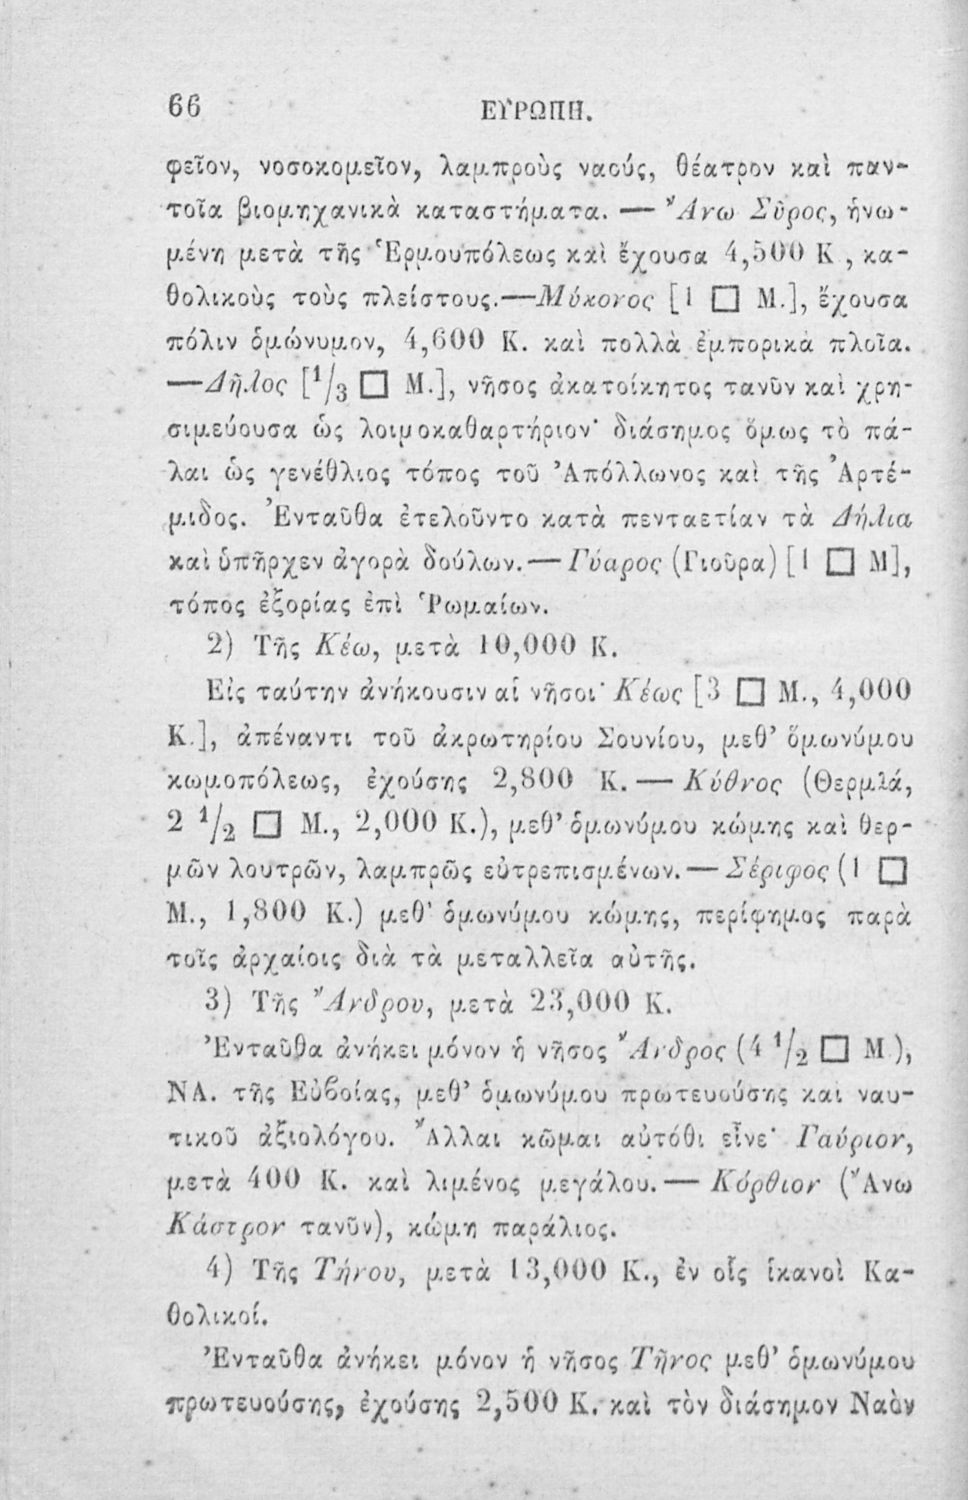 66 ΕΥΡΩΠΗ.
φεῖον, νοσοκομεῖον, λαμπροὺς ναούς, θέατρον καὶ παν-
τοῖα βιομηχανικὰ καταστήματα. — Ἄνω Σῦρος, ἡνω-
μένη μετὰ τῆς Ἑρμουπόλεως καὶ ἔχουσα 4,500 Κ., κα-
θολικοὺς τοὺς πλείστους.—Μύκονος [1 □ Μ.], ἔχουσα
πόλιν ὁμώνυμον, 4,600 Κ. καὶ πολλὰ ἐμπορικὰ πλοῖα.
—Δῆλος [1/3 □ Μ.], νῆσος ἀκατοίκητος τανῦν καὶ χρη-
σιμεύουσα ὡς λοιμοκαθαρτήριον· διάσημος ὅμως τὸ πά-
λαι ὡς γενέθλιος τόπος τοῦ Ἀπόλλωνος καὶ τῆς Ἀρτέ-
μιδος. Ἐνταῦθα ἐτελοῦντο κατὰ πενταετίαν τὰ Δήλια
καὶ ὑπῆρχεν ἀγορὰ δούλων.—Γύαρος (Γιοῦρα) [1 □ Μ],
τόπος ἐξορίας ἐπὶ Ῥωμαίων.
2) Τῆς Κέω, μετὰ 10,000 Κ.
Εἰς ταύτην ἀνήκουσιν αἱ νῆσοι· Κέως [3 □ Μ., 4,000
Κ.], ἀπέναντι τοῦ ἀκρωτηρίου Σουνίου, μεθ’ ὁμωνύμου
κωμοπόλεως, ἐχούσης 2,800 Κ.— Κύθνος (Θερμιά,
2 1/2 □ Μ., 2,000 Κ.), μεθ’ ὁμωνύμου κώμης καὶ θερ-
μῶν λουτρῶν, λαμπρῶς εὐτρεπισμένων.— Σέριφος (1 □
Μ., 1,800 Κ.) μεθ’ ὁμωνύμου κώμης, περίφημος παρὰ
τοῖς ἀρχαίοις διὰ τὰ μεταλλεῖα αὐτῆς.
3) Τῆς Ἄνδρου, μετὰ 23,000 Κ.
Ἐνταῦθα ἀνήκει μόνον ἡ νῆσος Ἄνδρος (4 1/2 □ Μ.),
ΝΑ. τῆς Εὐβοίας, μεθ’ ὁμωνύμου πρωτευούσης καὶ ναυ-
τικοῦ ἀξιολόγου. Ἄλλαι κῶμαι αὐτόθι εἶνε· Γαύριον,
μετὰ 400 Κ. καὶ λιμένος μεγάλου.— Κόρθιον (Ἄνω
Κάστρον τανῦν), κώμη παράλιος.
4) Τῆς Τήνου, μετὰ 13,000 Κ., ἐν οἷς ἱκανοὶ Κα-
θολικοί.
Ἐνταῦθα ἀνήκει μόνον ἡ νῆσος Τῆνος μεθ’ ὁμωνύμου
πρωτευούσης, ἐχούσης 2,500 Κ. καὶ τὸν διάσημον Ναὸν